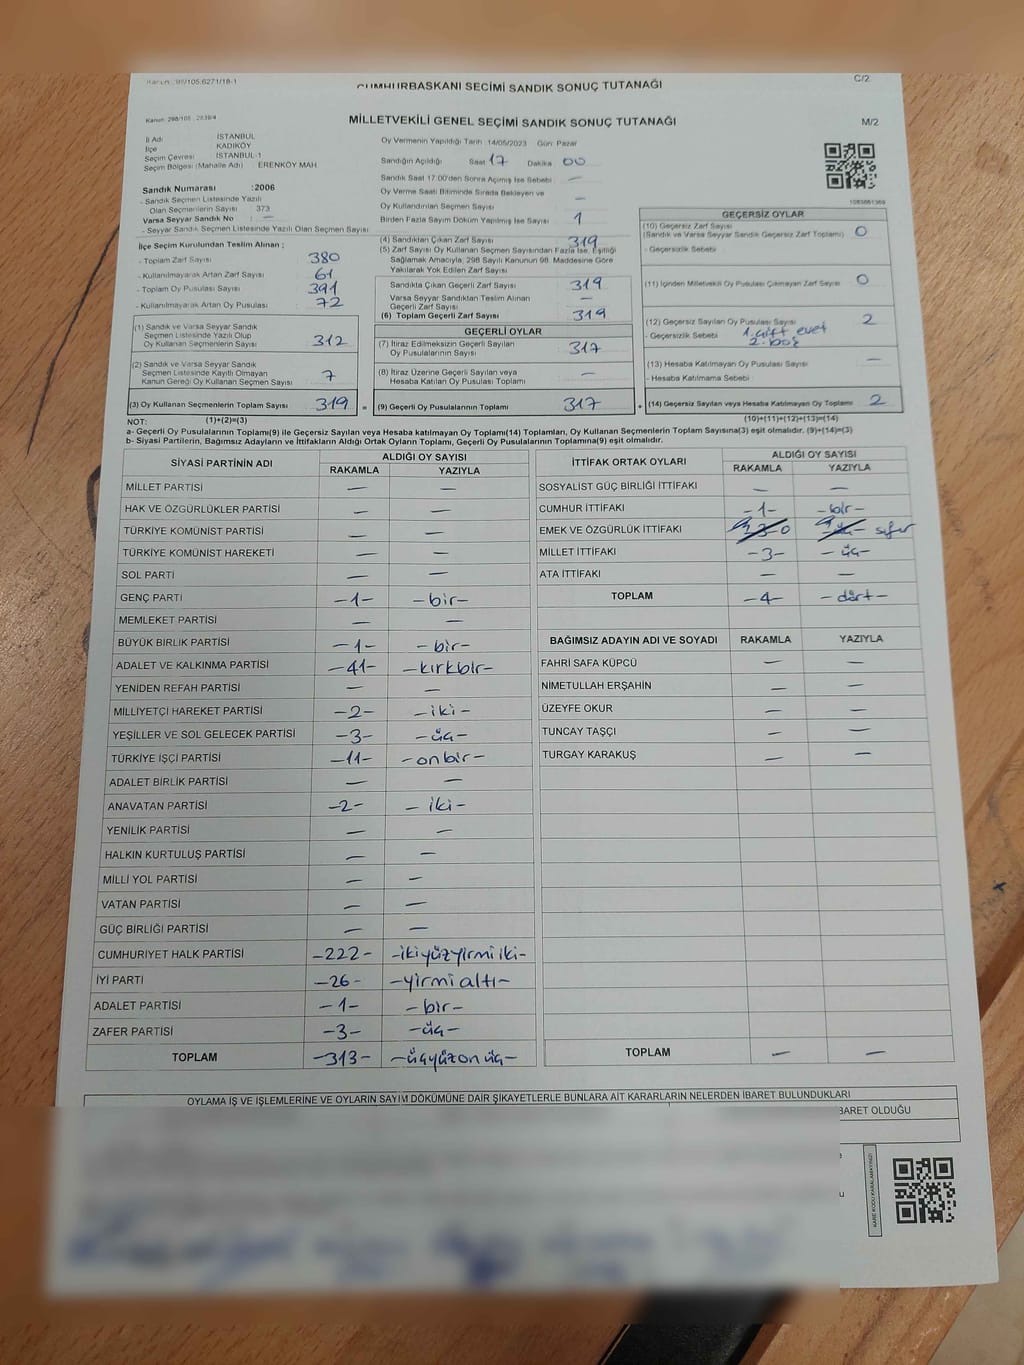 Kanun : 98/105:6271/18-1
CUMHURBAŞKANI SEÇİMİ SANDIK SONUÇ TUTANAĞI
C/2
Kanun: 298/105 , 2839/4
MİLLETVEKİLİ GENEL SEÇİMİ SANDIK SONUÇ TUTANAĞI
M/2
İl Adı : İSTANBUL
İlçe : KADIKÖY
Seçim Çevresi : İSTANBUL-1
Seçim Bölgesi (Mahalle Adı) : ERENKÖY MAH.
Sandık Numarası :2006
- Sandık Seçmen Listesinde Yazılı
Olan Seçmenlerin Sayısı : 373
Varsa Seyyar Sandık No : —
- Seyyar Sandık Seçmen Listesinde Yazılı Olan Seçmen Sayısı :
Oy Vermenin Yapıldığı Tarih :14/05/2023 Gün: Pazar
Sandığın Açıldığı Saat 17 Dakika 00
Sandık Saat 17.00'den Sonra Açılmış İse Sebebi : —
Oy Verme Saati Bitiminde Sırada Bekleyen ve
Oy Kullandırılan Seçmen Sayısı : —
Birden Fazla Sayım Döküm Yapılmış İse Sayısı : 1
1083861369
İlçe Seçim Kurulundan Teslim Alınan ;
- Toplam Zarf Sayısı : 380
- Kullanılmayarak Artan Zarf Sayısı : 61
- Toplam Oy Pusulası Sayısı : 391
- Kullanılmayarak Artan Oy Pusulası : 72
(1) Sandık ve Varsa Seyyar Sandık
Seçmen Listesinde Yazılı Olup
Oy Kullanan Seçmenlerin Sayısı : 312
(2) Sandık ve Varsa Seyyar Sandık
Seçmen Listesinde Kayıtlı Olmayan
Kanun Gereği Oy Kullanan Seçmen Sayısı : 7
(3) Oy Kullanan Seçmenlerin Toplam Sayısı : 319 =
(4) Sandıktan Çıkan Zarf Sayısı : 319
(5) Zarf Sayısı Oy Kullanan Seçmen Sayısından Fazla İse, Eşitliği
Sağlamak Amacıyla, 298 Sayılı Kanunun 98. Maddesine Göre
Yakılarak Yok Edilen Zarf Sayısı :
Sandıkta Çıkan Geçerli Zarf Sayısı : 319
Varsa Seyyar Sandıktan Teslim Alınan
Geçerli Zarf Sayısı : —
(6) Toplam Geçerli Zarf Sayısı : 319
GEÇERLİ OYLAR
(7) İtiraz Edilmeksizin Geçerli Sayılan
Oy Pusulalarının Sayısı : 317
(8) İtiraz Üzerine Geçerli Sayılan veya
Hesaba Katılan Oy Pusulası Toplamı : —
(9) Geçerli Oy Pusulalarının Toplamı : 317 +
GEÇERSİZ OYLAR
(10) Geçersiz Zarf Sayısı : 0
(Sandık ve Varsa Seyyar Sandık Geçersiz Zarf Toplamı)
- Geçersizlik Sebebi :
(11) İçinden Milletvekili Oy Pusulası Çıkmayan Zarf Sayısı : 0
(12) Geçersiz Sayılan Oy Pusulası Sayısı : 2
- Geçersizlik Sebebi : 1. çift evet
2. boş
(13) Hesaba Katılmayan Oy Pusulası Sayısı : —
- Hesaba Katılmama Sebebi :
(14) Geçersiz Sayılan veya Hesaba Katılmayan Oy Toplamı : 2
NOT: (1)+(2)=(3) (10)+(11)+(12)+(13)=(14)
a- Geçerli Oy Pusulalarının Toplamı(9) ile Geçersiz Sayılan veya Hesaba Katılmayan Oy Toplamı(14) Toplamları, Oy Kullanan Seçmenlerin Toplam Sayısına(3) eşit olmalıdır. (9)+(14)=(3)
b- Siyasi Partilerin, Bağımsız Adayların ve İttifakların Aldığı Ortak Oyların Toplamı, Geçerli Oy Pusulalarının Toplamına(9) eşit olmalıdır.
SİYASİ PARTİNİN ADI
ALDIĞI OY SAYISI
RAKAMLA YAZIYLA
MİLLET PARTİSİ — —
HAK VE ÖZGÜRLÜKLER PARTİSİ — —
TÜRKİYE KOMÜNİST PARTİSİ — —
TÜRKİYE KOMÜNİST HAREKETİ — —
SOL PARTİ — —
GENÇ PARTİ -1- -bir-
MEMLEKET PARTİSİ — —
BÜYÜK BİRLİK PARTİSİ -1- -bir-
ADALET VE KALKINMA PARTİSİ -41- -kırkbir-
YENİDEN REFAH PARTİSİ — —
MİLLİYETÇİ HAREKET PARTİSİ -2- -iki-
YEŞİLLER VE SOL GELECEK PARTİSİ -3- -üç-
TÜRKİYE İŞÇİ PARTİSİ -11- -onbir-
ADALET BİRLİK PARTİSİ — —
ANAVATAN PARTİSİ -2- -iki-
YENİLİK PARTİSİ — —
HALKIN KURTULUŞ PARTİSİ — —
MİLLİ YOL PARTİSİ — —
VATAN PARTİSİ — —
GÜÇ BİRLİĞİ PARTİSİ — —
CUMHURİYET HALK PARTİSİ -222- -ikiyüzyirmiiki-
İYİ PARTİ -26- -yirmialtı-
ADALET PARTİSİ -1- -bir-
ZAFER PARTİSİ -3- -üç-
TOPLAM -313- -üçyüzonüç-
İTTİFAK ORTAK OYLARI
ALDIĞI OY SAYISI
RAKAMLA YAZIYLA
SOSYALİST GÜÇ BİRLİĞİ İTTİFAKI — —
CUMHUR İTTİFAKI -1- -bir-
EMEK VE ÖZGÜRLÜK İTTİFAKI 0 sıfır
MİLLET İTTİFAKI -3- -üç-
ATA İTTİFAKI — —
TOPLAM -4- -dört-
BAĞIMSIZ ADAYIN ADI VE SOYADI RAKAMLA YAZIYLA
FAHRİ SAFA KÜPCÜ — —
NİMETULLAH ERŞAHİN — —
ÜZEYFE OKUR — —
TUNCAY TAŞÇI — —
TURGAY KARAKUŞ — —
TOPLAM — —
OYLAMA İŞ VE İŞLEMLERİNE VE OYLARIN SAYIM DÖKÜMÜNE DAİR ŞİKAYETLERLE BUNLARA AİT KARARLARIN NELERDEN İBARET BULUNDUKLARI
BARET OLDUĞU
KARE KODU KARALAMAYINIZ!